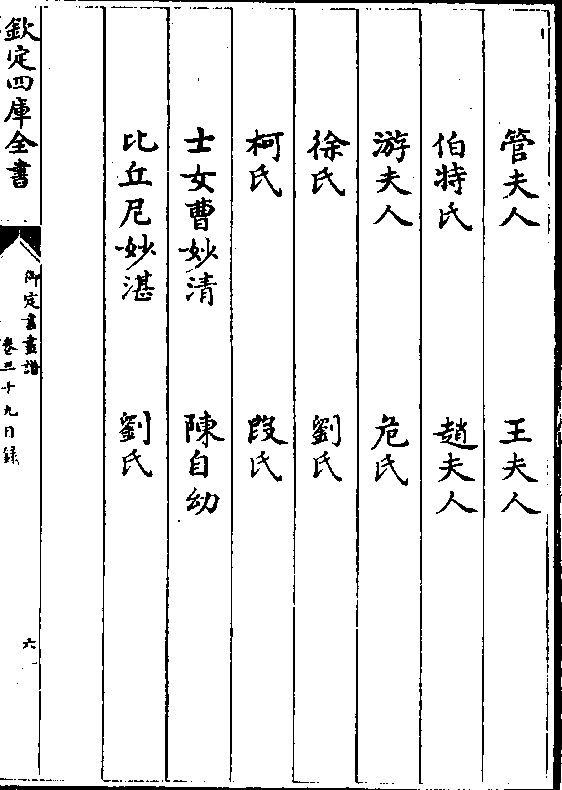 管夫人　王夫人
伯特氏　趙夫人
游夫人　危氏
徐氏　劉氏
柯氏　段氏
士女曹妙清　陳自幼
比丘尼妙湛　劉氏
欽定四庫全書
御定書畫譜
卷三十九目録
六